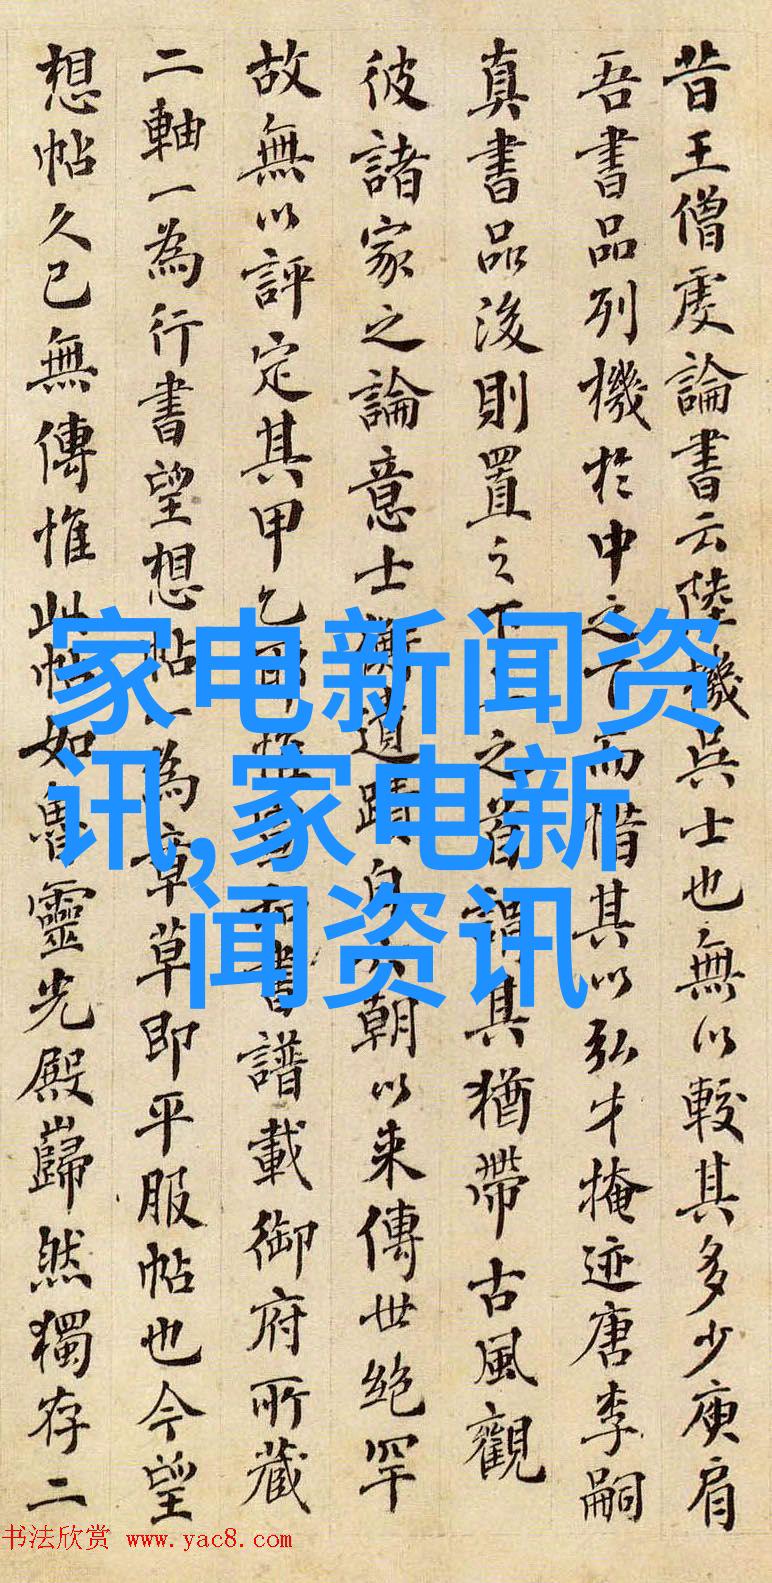 昔王僧虔論書云陸機吳士也無以較其多少庾肩
吾書品列機於中之下而惜其以弘才掩迹唐李嗣
真書品後則置之下上之首謂其猶帶古風觀
彼諸家之論意士衡遺蹟自六朝以来傳世絶罕
故無以評定其甲乙耶惟宣和書譜載御府所藏
二軸一為行書望想帖一為章草即平服帖也今望
想帖久已無傳惟此帖如魯靈光殿巋然獨存二
家电新闻资
讯,家电新
闻资讯
书法欣赏 www.yac8.com